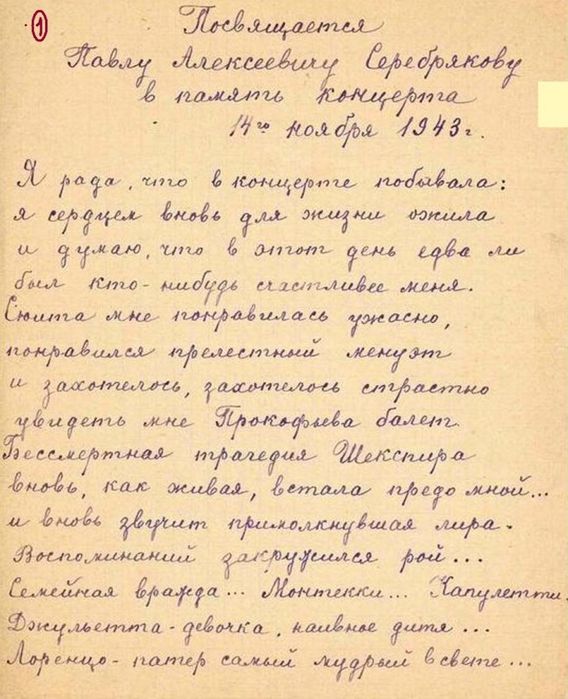 1
Посвящается
Павлу Алексеевичу Серебрякову
в память концерта
14го ноября 1943 г.
Я рада, что в концерте побывала:
я сердцем вновь для жизни ожила
и думаю, что в этот день едва ли
был кто-нибудь счастливее меня.
Сюита мне понравилась ужасно,
понравился прелестный менуэт
и захотелось, захотелось страстно
увидеть мне Прокофьева балет.
Бессмертная трагедия Шекспира
вновь, как живая, встала предо мной...
и вновь звучит примолкнувшая лира.
Воспоминаний закружился рой...
Семейная вражда... Монтекки... Капулетти.
Джульетта-девочка, наивное дитя...
Лоренцо-патер самый мудрый в свете...